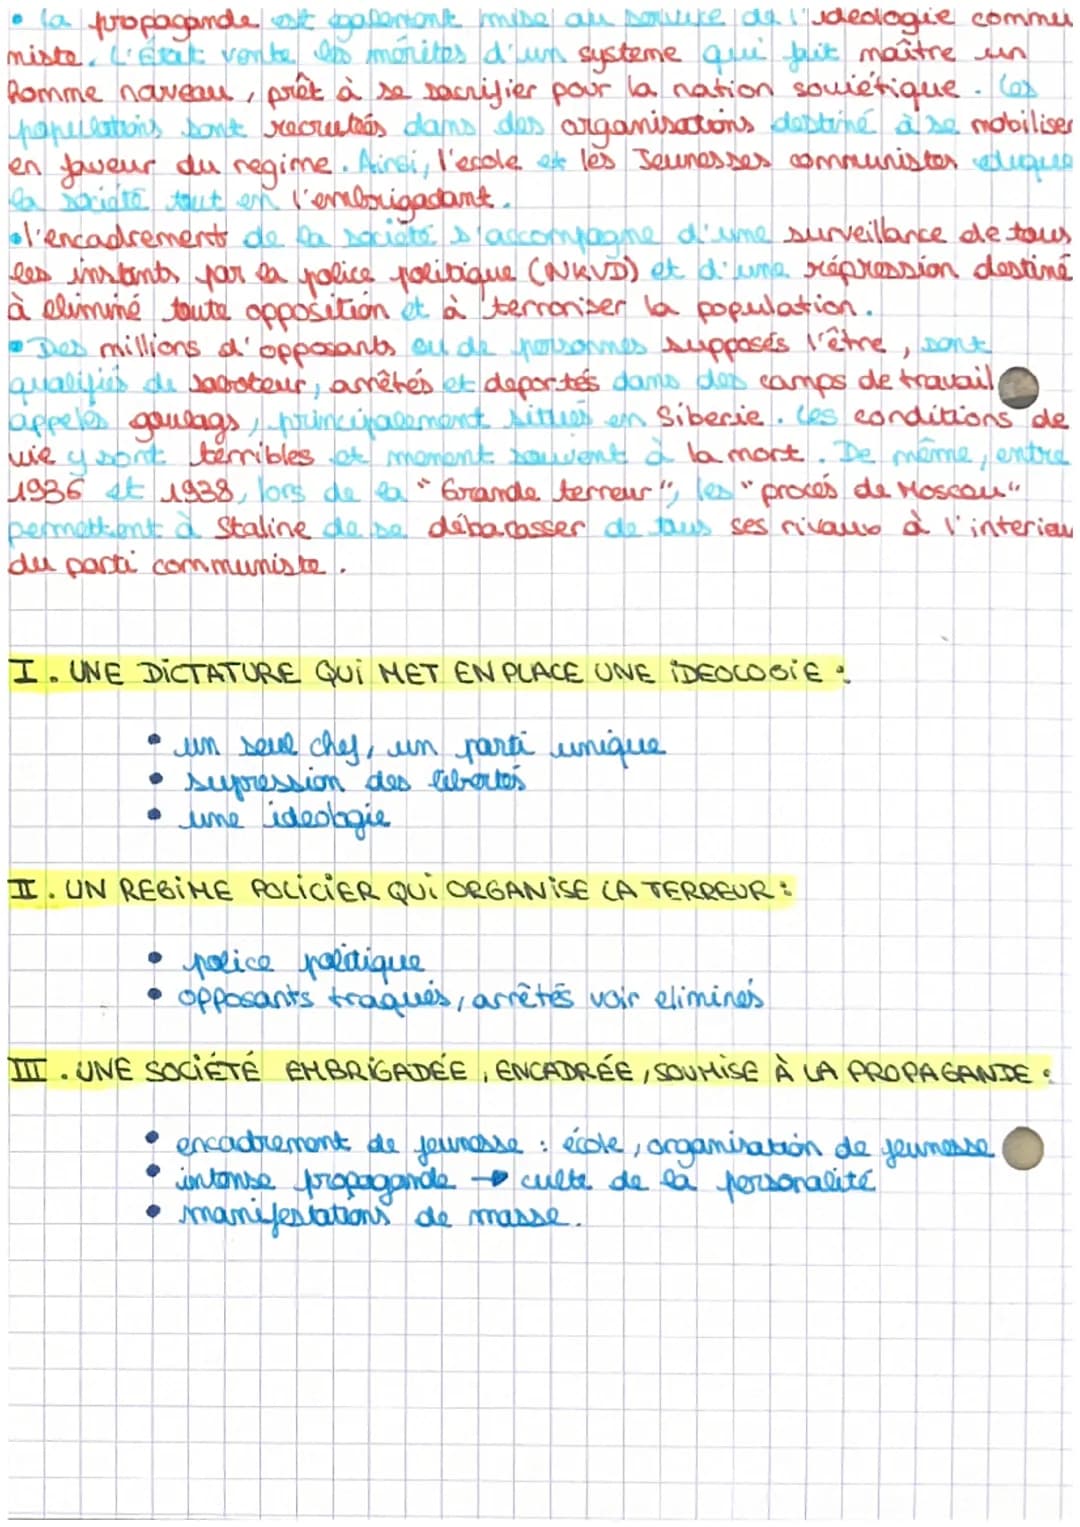 • la propagande est également mise au service de l'ideologie commu
niste. L'État vente les mérites d'un systeme qui fait maître un
homme naveau, prêt à se sacrifier pour la nation souiétique. Les
populations sont recrutées dans des organisations destiné à se mobiliser
en faveur du regime. Ainsi, l'ecole et les Jeunesses communistes eduque
la société tout en l'embrigadant.
• l'encadrement de la societé s'accompagne d'une surveillance de tous
les instants par la police politique (NKVD) et d'une répression destiné
à eliminé toute opposition et à terroriser la population.
• Des millions d'opposants ou de personnes supposés l'être, sont
qualifiés de saboteur, arrêtés et deportés dans des camps de travail
appelés goulags, principalement situés en Siberie. Les conditions de
vie y sont terribles et menent souvent à la mort. De même, entre
1936 et 1938, lors de la "Grande terreur", les "procés de Moscou"
permettent à Staline de se débarasser de tous ses rivaux à l'interieu
du parti communiste.
I. UNE DICTATURE QUI MET EN PLACE UNE IDEOLOGIE :
• un seul chef, un parti unique
• supression des libertés
• une ideologie
II. UN REGIME POLICIER QUI ORGANISE LA TERREUR :
• police politique
• opposants traqués, arrêtés voir eliminés
III. UNE SOCIÉTÉ EMBRIGADÉE, ENCADRÉE, SOUMISE À LA PROPAGANDE :
• encadrement de jeunesse : école, organisation de jeunesse
• intense propagande → culte de la personalité
• manifestations de masse.